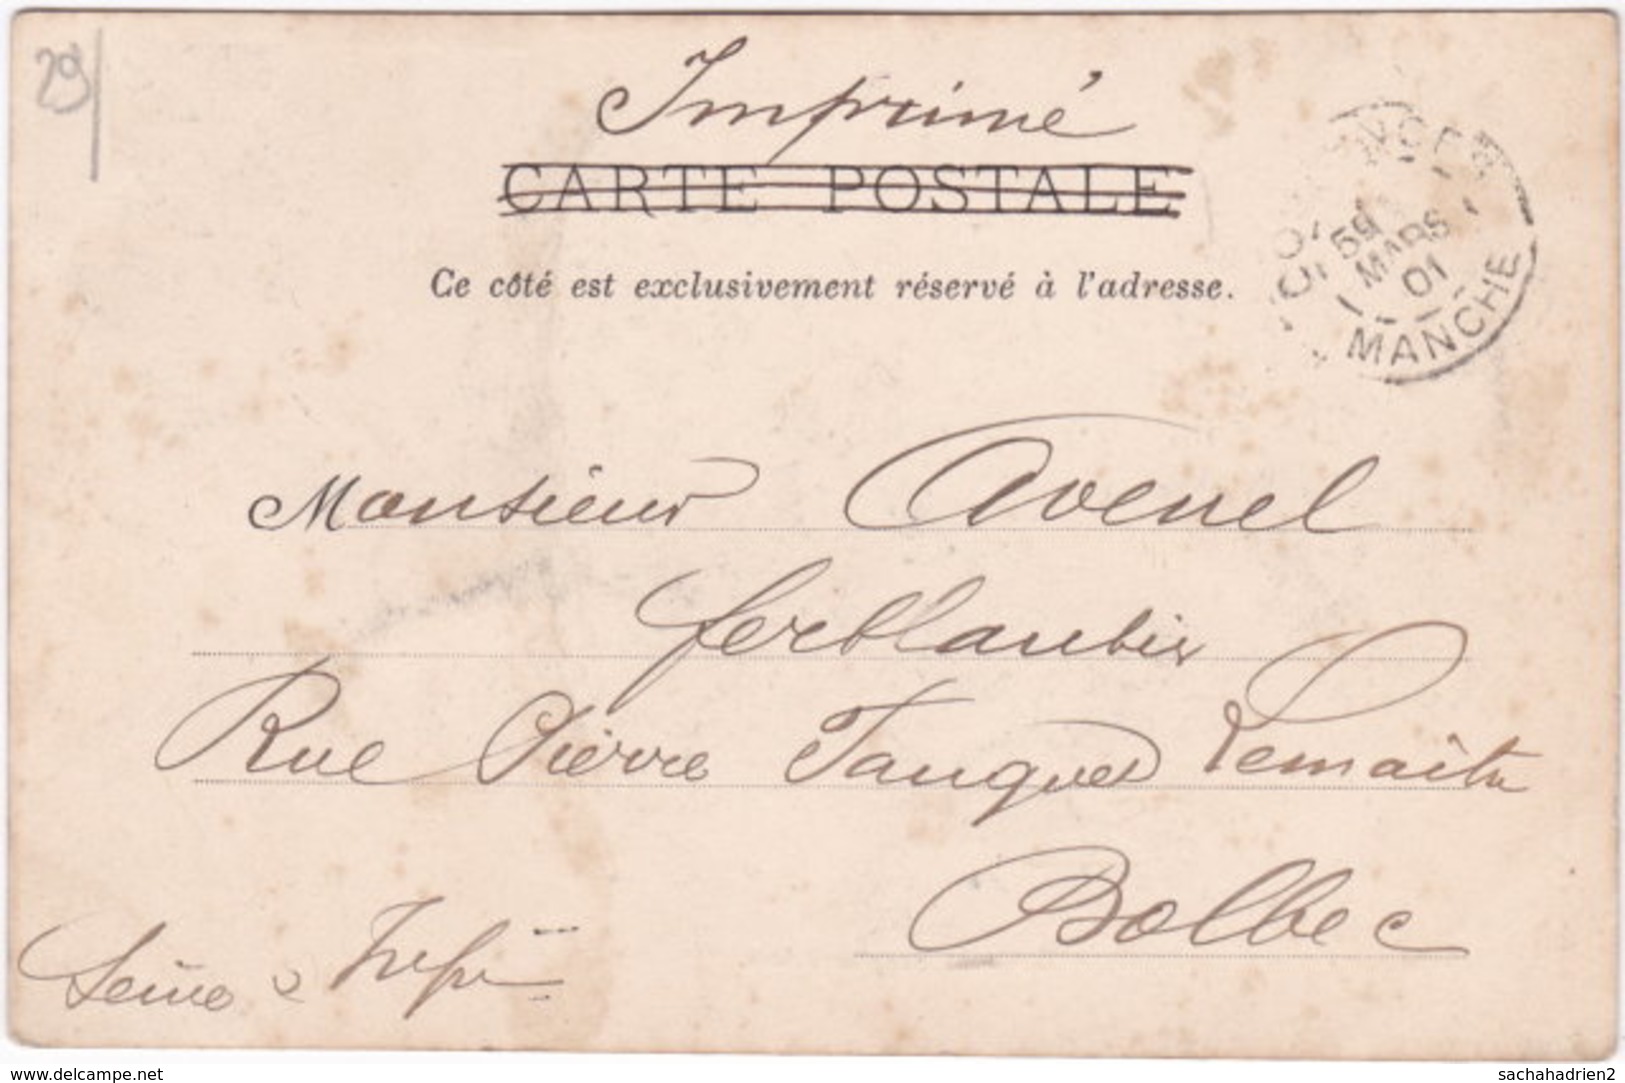 29
Imprimé
CARTE POSTALE
Ce côté est exclusivement réservé à l'adresse.
MARS
01
MANCHE
Monsieur Avenel
ferblantier
Rue Pierre Fauquet Lemaître
Bolbec
Seine
www.delcampe.net
sachahadrien2